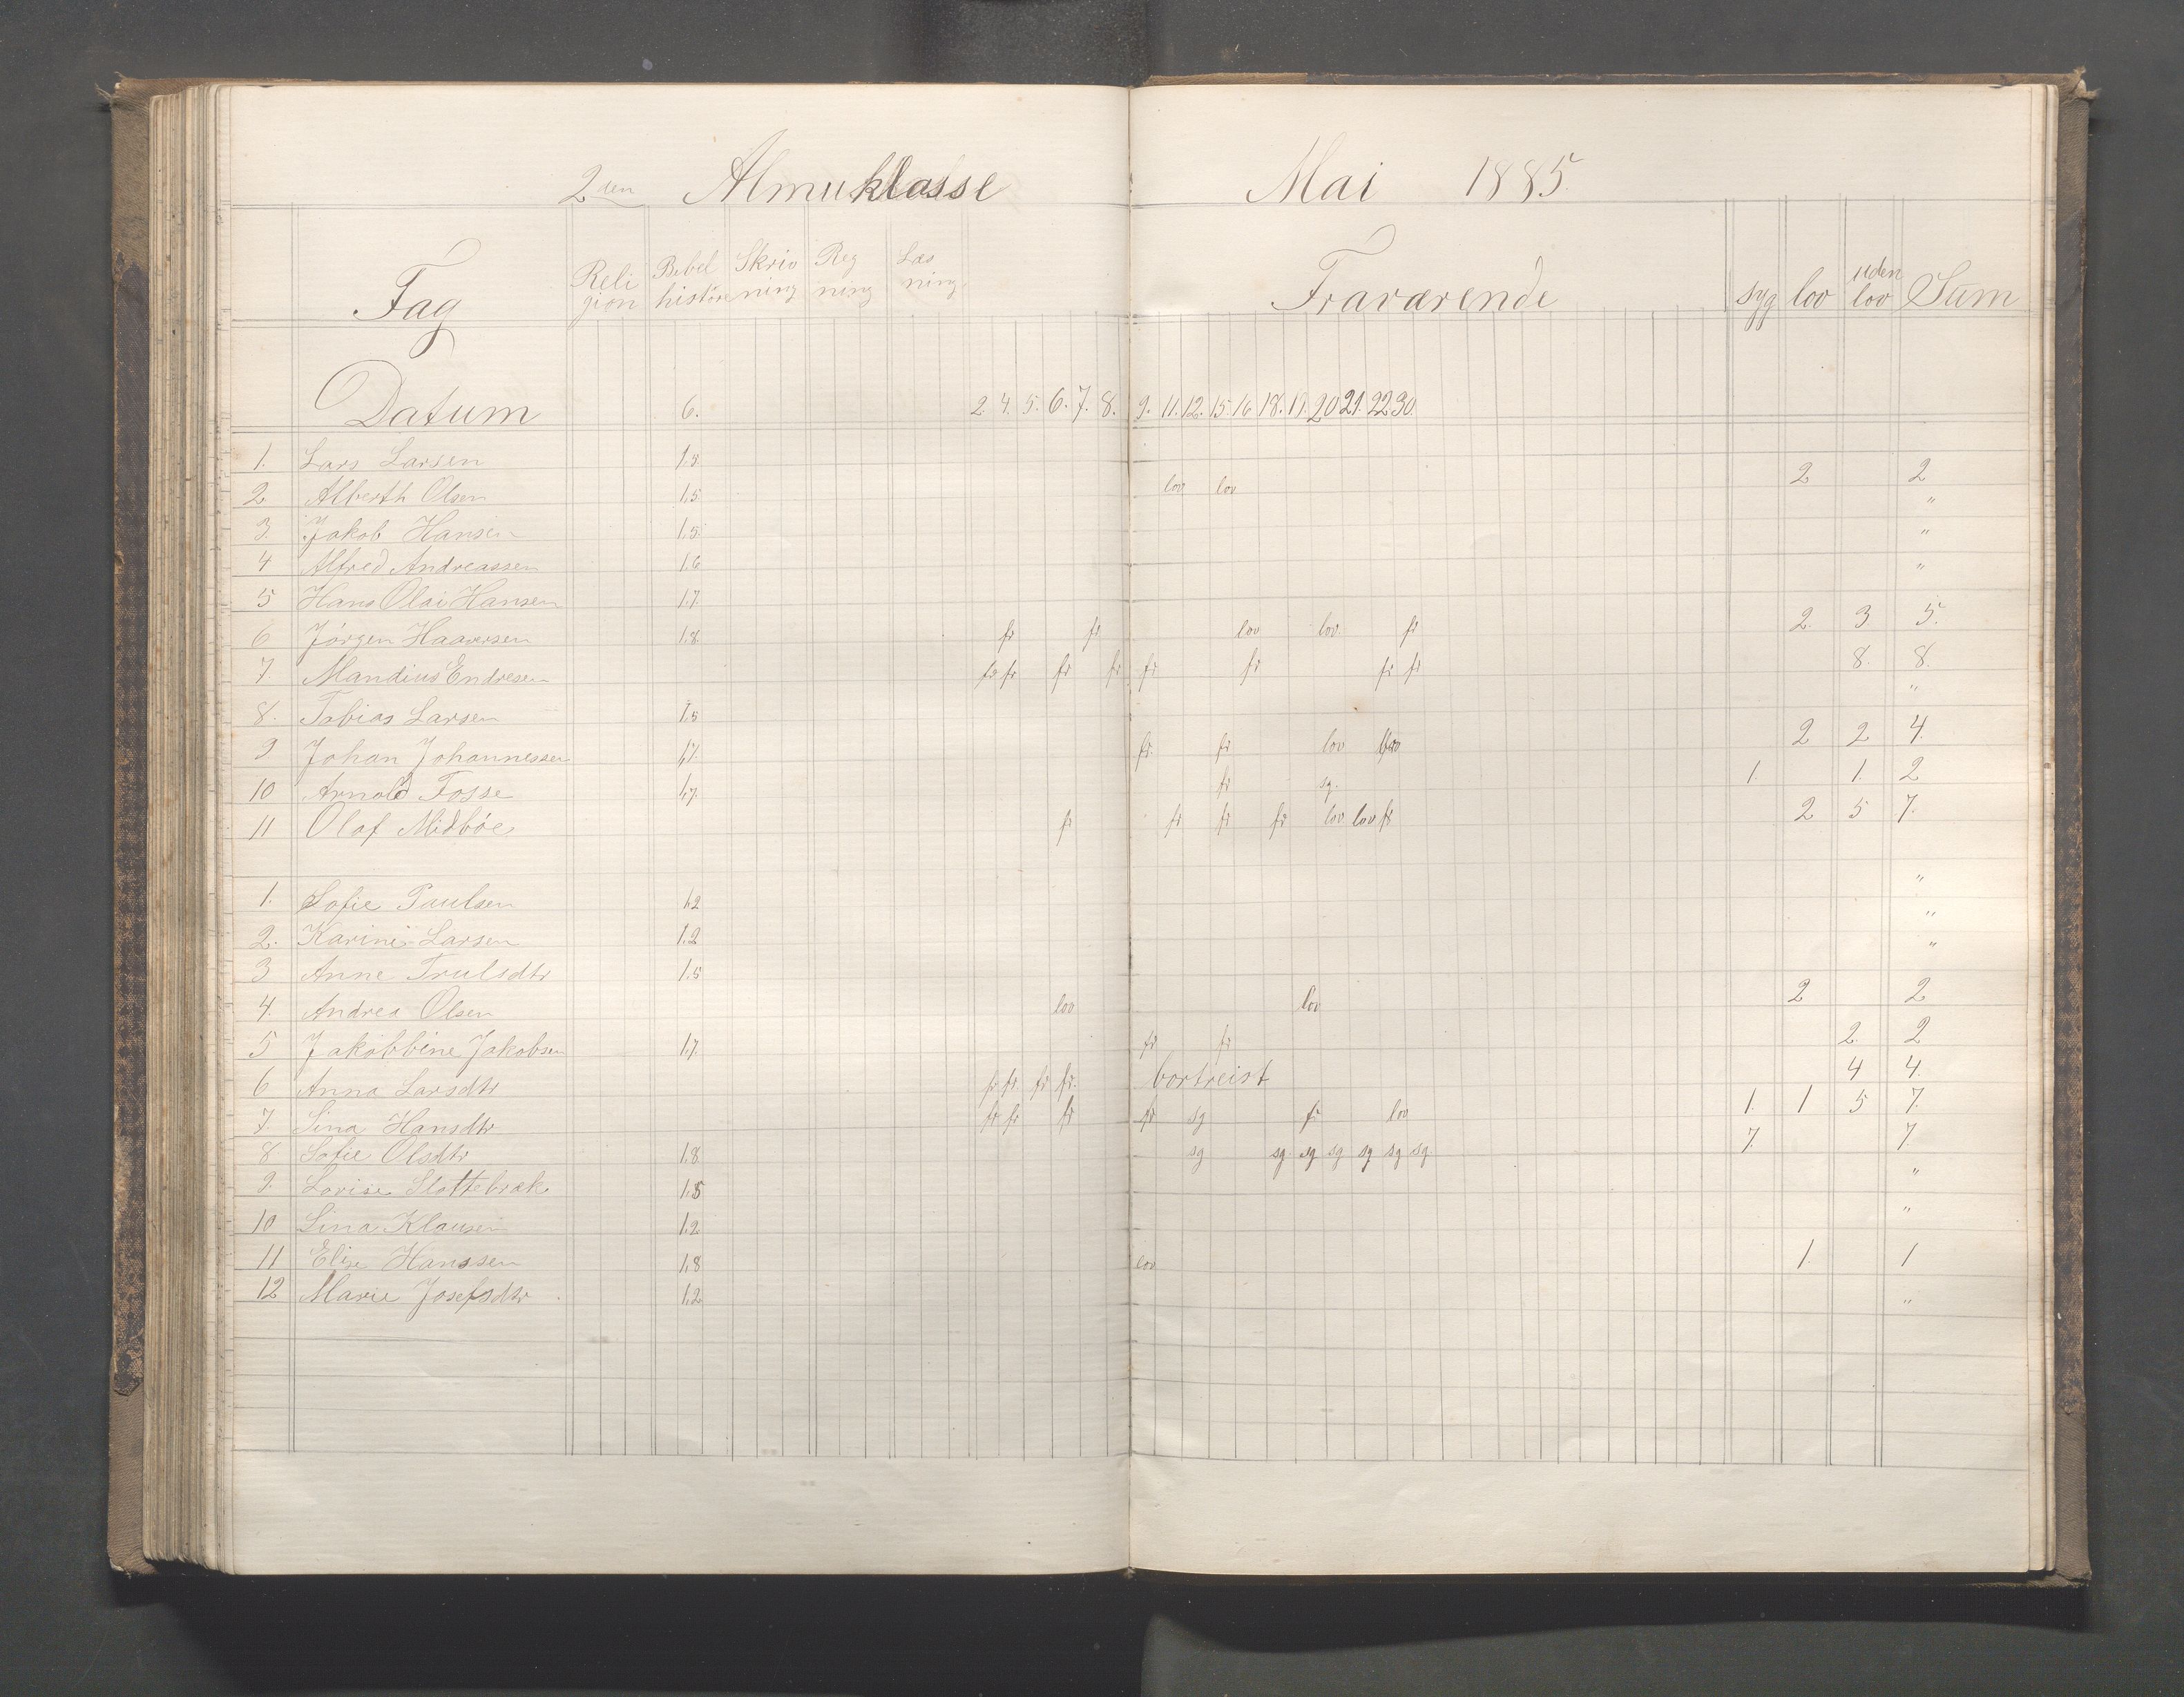 2den Almuklasse Mai 1885.
Fag Reli gion Bibel historie Skriv ning Reg ning Læs ning. Fraværende syg lov uden lov Sum
Datum 6. 2. 4. 5. 6. 7. 8. 9. 11. 12. 15. 16 18. 19. 20 21. 22 30.
1. Lars Larsen 1.5.
2 Alberth Olsen 1.5 lov lov 2 2
3. Jakob Hansen 1.5. "
4 Alfred Andreassen 1.6 "
5 Hans Olai Hansen 1.7. "
6 Jörgen Haaversen 1.8. fr fr lov lov. fr 2. 3 5.
7. Mandius Endresen fr fr fr fr fr fr fr fr 8. 8.
8. Tobias Larsen 1.5 "
9 Johan Johannessen 1.7. fr. fr lov lov 2 2 4.
10 Arnold Fosse 1.7. fr sg. 1. 1. 2
11 Olaf Midböe fr fr fr fr lov lov fr 2 5 7.
1. Sofie Paulsen 1.2 "
2. Karine Larsen 1.2 "
3 Anne Trulsdtr 1.5 "
4. Andrea Olsen lov lov 2 2
5 Jakobbine Jakobsen 1.7. fr fr 2. 2
6 Anna Larsdtr fr fr. fr fr. bortreist 4 4.
7. Sina Hansdtr fr fr fr fr sg fr lov 1. 1 5 7.
8 Sofie Olsdtr 1.8. sg sg. sg sg sg sg sg. 7. 7
9. Lovise Slottebrak 1.5 "
10 Lina Klausen 1.2 "
11 Elise Hanssen 1.8 lov 1. 1
12 Marie Josefsdtr 1.2 "